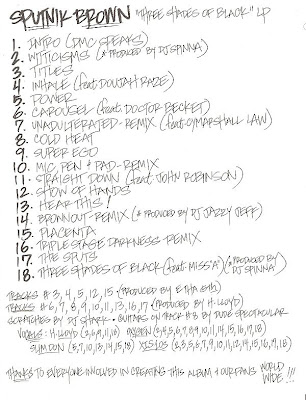 SPUTNIK BROWN "THREE SHADES OF BLACK" LP
1. INTRO (DMC SPEAKS)
2. WITTICISMS (* PRODUCED BY DJ SPINNA)
3. TITLES
4. INHALE (feat. DOUJAH RAZE)
5. POWER
6. CAROUSEL (feat. DOCTOR BECKET)
7. UNADULTERATED-REMIX (feat. CYMARSHALL LAW)
8. COLD HEAT
9. SUPER EGO
10. MIC, PEN & PAD-REMIX
11. STRAIGHT DOWN (feat. JOHN ROBINSON)
12. SHOW OF HANDS
13. HEAR THIS!
14. BROWNOUT-REMIX (* PRODUCED BY DJ JAZZY JEFF)
15. PLACENTA
16. TRIPLE STAGE DARKNESS-REMIX
17. THE SPUTS
18. THREE SHADES OF BLACK (feat. MISS "A") (* PRODUCED BY DJ SPINNA)
TRACKS # 3, 4, 5, 12, 15 * PRODUCED BY E THA 
TRACKS # 6, 7, 8, 9, 10, 11, 13, 16, 17 * PRODUCED BY H. LLOYD
SCRATCHES BY DJ SHARK * GUITARS ON TRACK # 8 BY DUDE SPECTACULAR
VOCALS: H. LLOYD (3,6,9,11,18)
THANKS TO EVERYONE INVOLVED IN CREATING THIS ALBUM & OUR FANS WORLD WIDE!!!